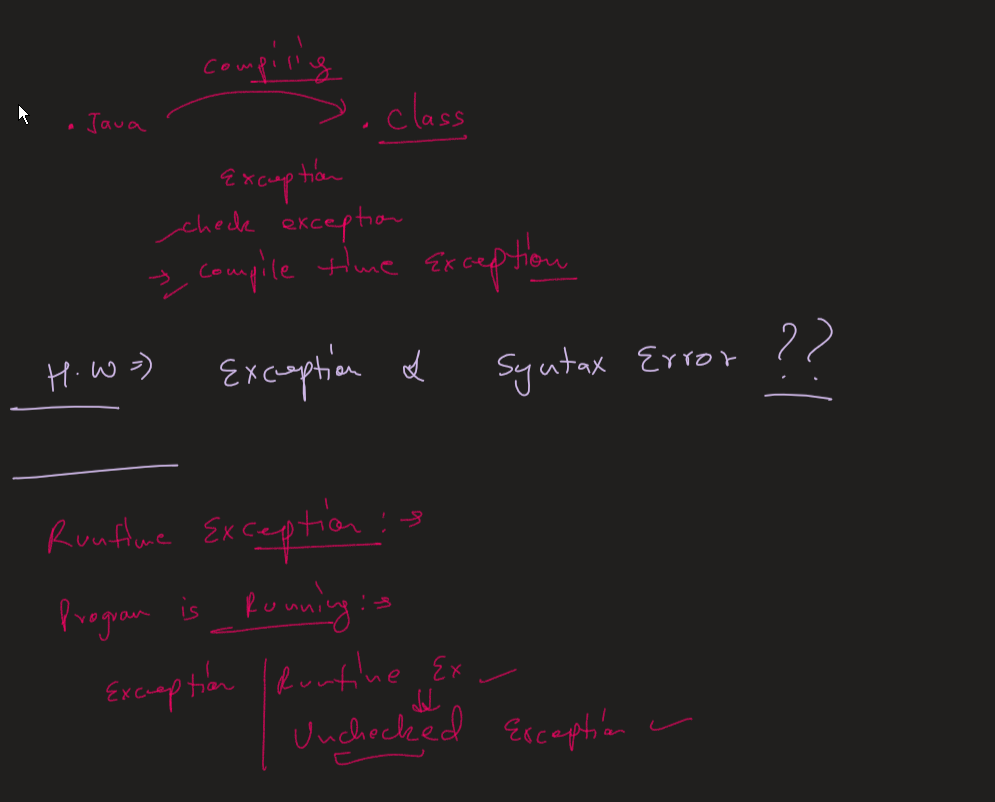 Compiling
. Java . Class
Exception
check exception
→ compile time Exception
H.W ⇒ Exception & Syntax Error ??
Runtime Exception : →
Program is Running : →
Exception | Runtime Ex ✓
Unchecked Exception ✓